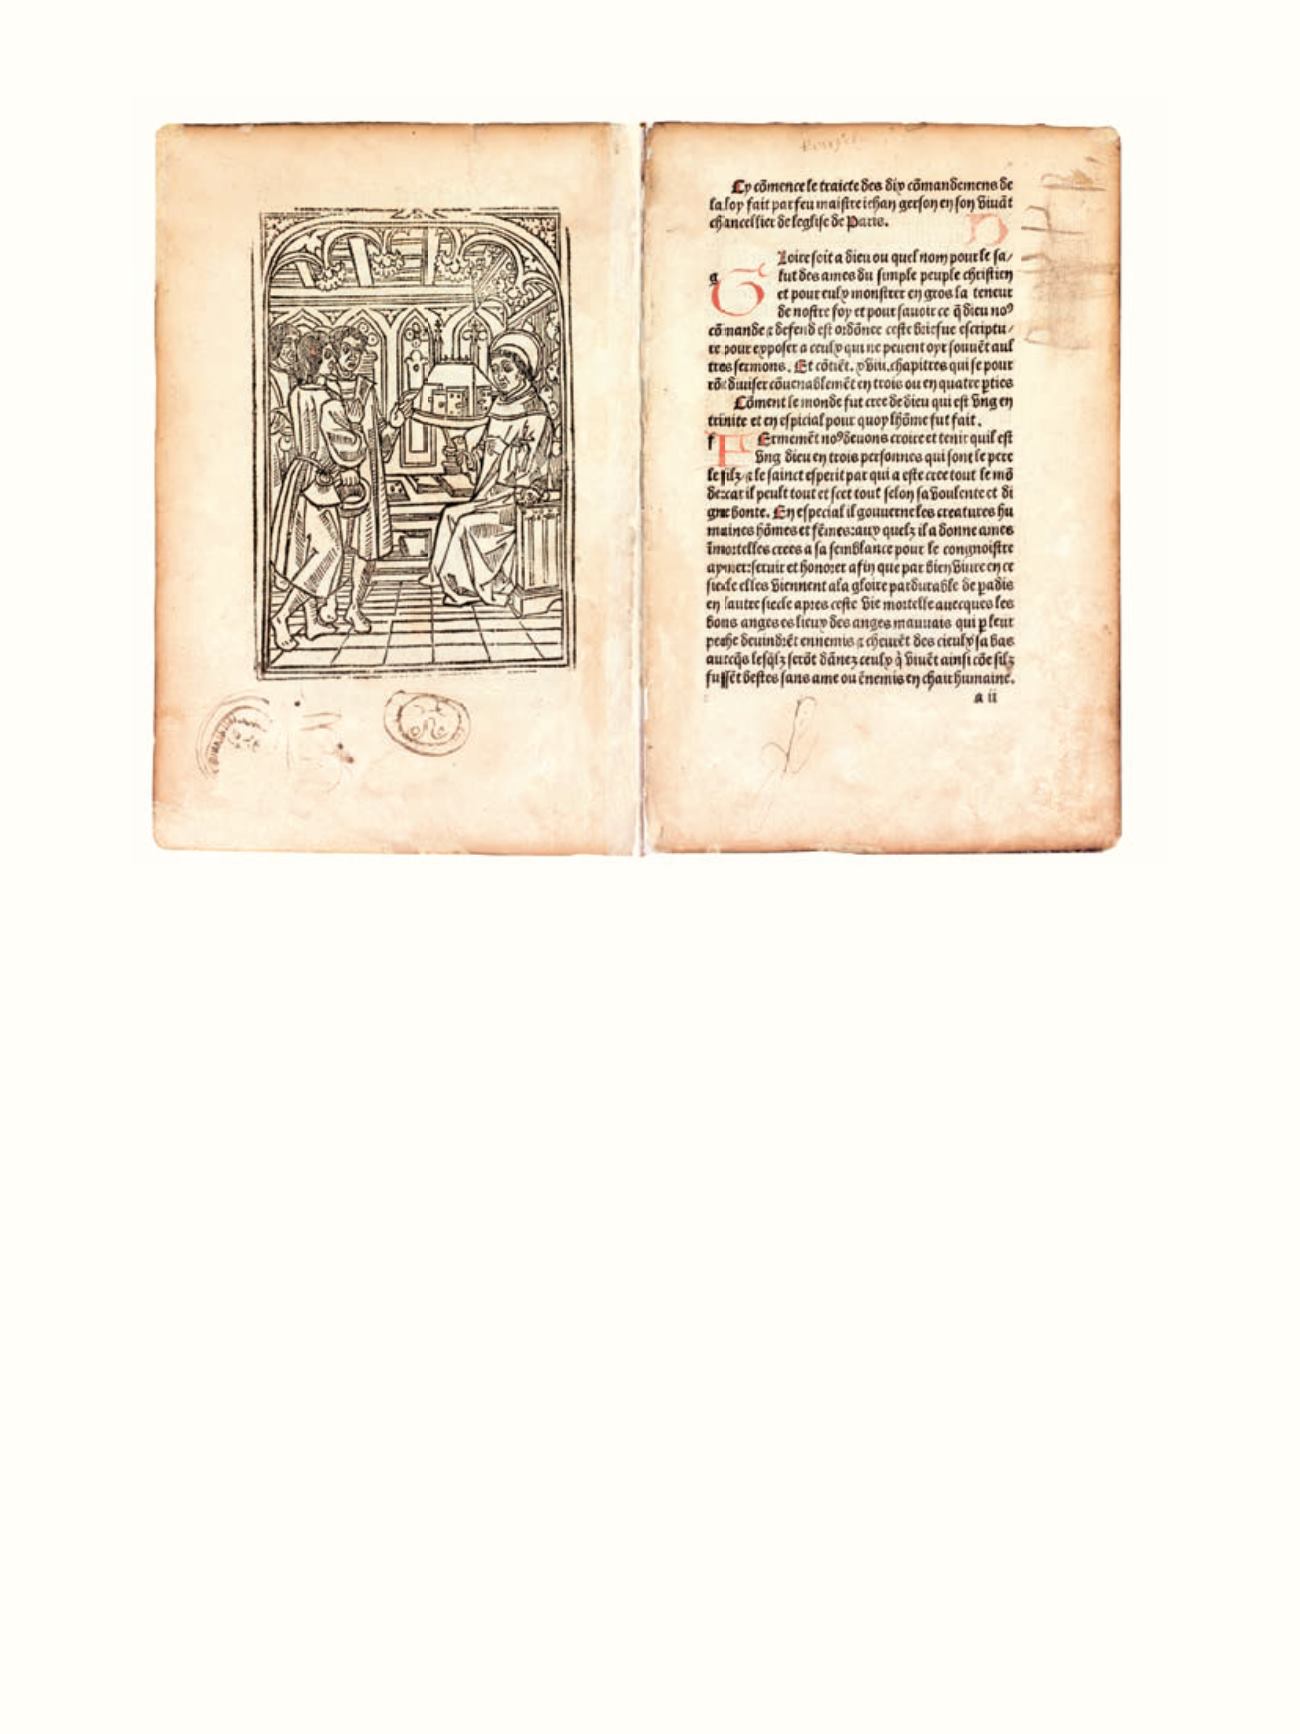 Cy cōmence le traicte des dix cōmandemens de
la loy fait par feu maistre iehan gerson en son viuāt
chancellier de leglise de Paris.
g G Loire soit a dieu ou quel nom pour le sa/
lut des ames du simple peuple christien
et pour eulx monstrer en gros la teneur
de nostre foy et pour sauoir ce q̄ dieu noꝰ
cōmande ⁊ defend est ordōnce ceste briefue escriptu/
re pour exposer a ceulx qui ne peuent oyr souuēt aul
tres sermons. Et cōtiēt. xviii. chapitres qui se pour
rōt diuiser cōuenablemēt en trois ou en quatre ꝑties
Cōment le monde fut cree de dieu qui est vng en
trinite et en espicial pour quoy lhōme fut fait.
f F Ermemēt noꝰ deuons croire et tenir quil est
vng dieu en trois personnes qui sont le pere
le filz ⁊ le sainct esperit par qui a este cree tout le mō
de: car il peult tout et scet tout selon sa voulente et di
gne bonte. En especial il gouuerne les creatures hu
maines hōmes et fēmes: aux quelz il a donne ames
īmortelles crees a sa semblance pour le congnoistre
aymer: seruir et honorer afin que par bien viure en ce
siecle elles viennent a la gloire pardurable de ꝑadis
en lautre siecle apres ceste vie mortelle auecques les
bons anges es lieux des anges mauuais qui ꝑ leur
peche deuindrēt ennemis ⁊ cheurēt des cieulx sa bas
auecq̄s lesq̄lz serōt dānez ceulx q̄ viuēt ainsi cōe silz
fussēt bestes sans ame ou ēnemis en chair humaine.
a ii